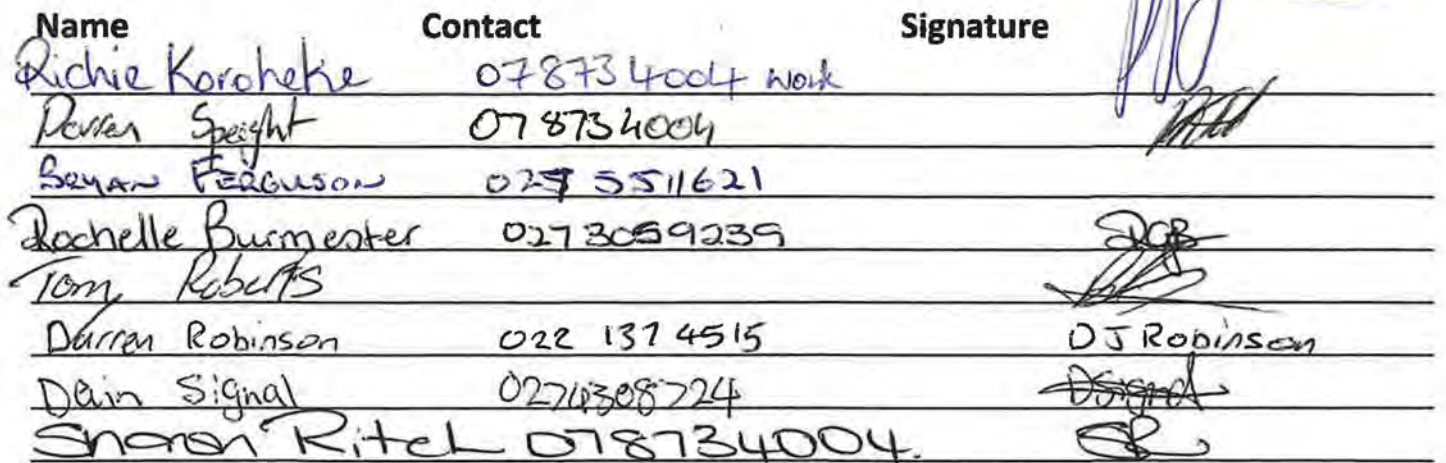 Name Contact Signature
Richie Koroheke 078734004 work
Darren Speight 078734004
FERGUSON 027 5511621
Rochelle Burmester 0273059239
Tom Roberts
Darren Robinson 022 137 4515 DJ Robinson
Dain Signal 0274308724 DSignal
Sharon Ritch 078734004.